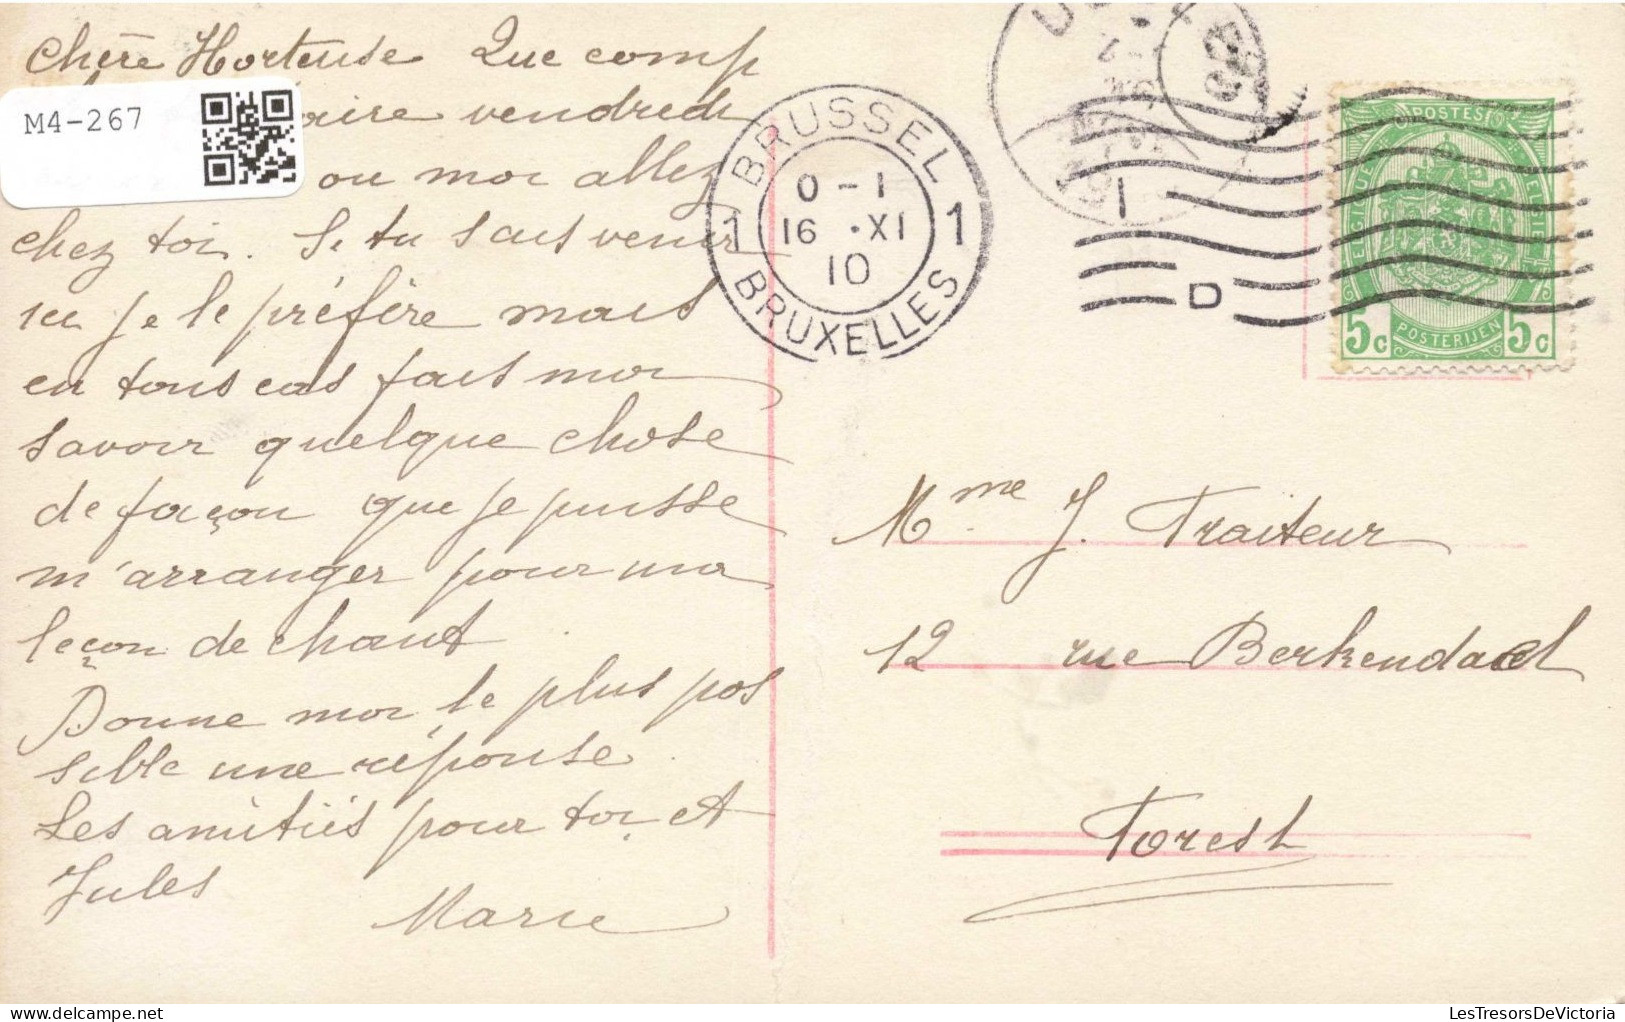 Chère Hortense Que comp
faire vendredi
M4-267
ou moi allez
chez toi. Si tu sais venir
ici je le préfère mais
en tous cas fais moi
savoir quelque chose
de façon que je puisse
m'arranger pour ma
leçon de chant
Donne moi le plus pos
sible une réponse.
Les amitiés pour toi et
Jules
Marie
BRUSSEL
1 0-1 1
16 .XI
10
BRUXELLES
D
POSTES
BELGIQUE
5c POSTERIJEN 5c
Mme J. Traiteur
12 rue Berkendael
Forest
LesTresorsDeVictoria